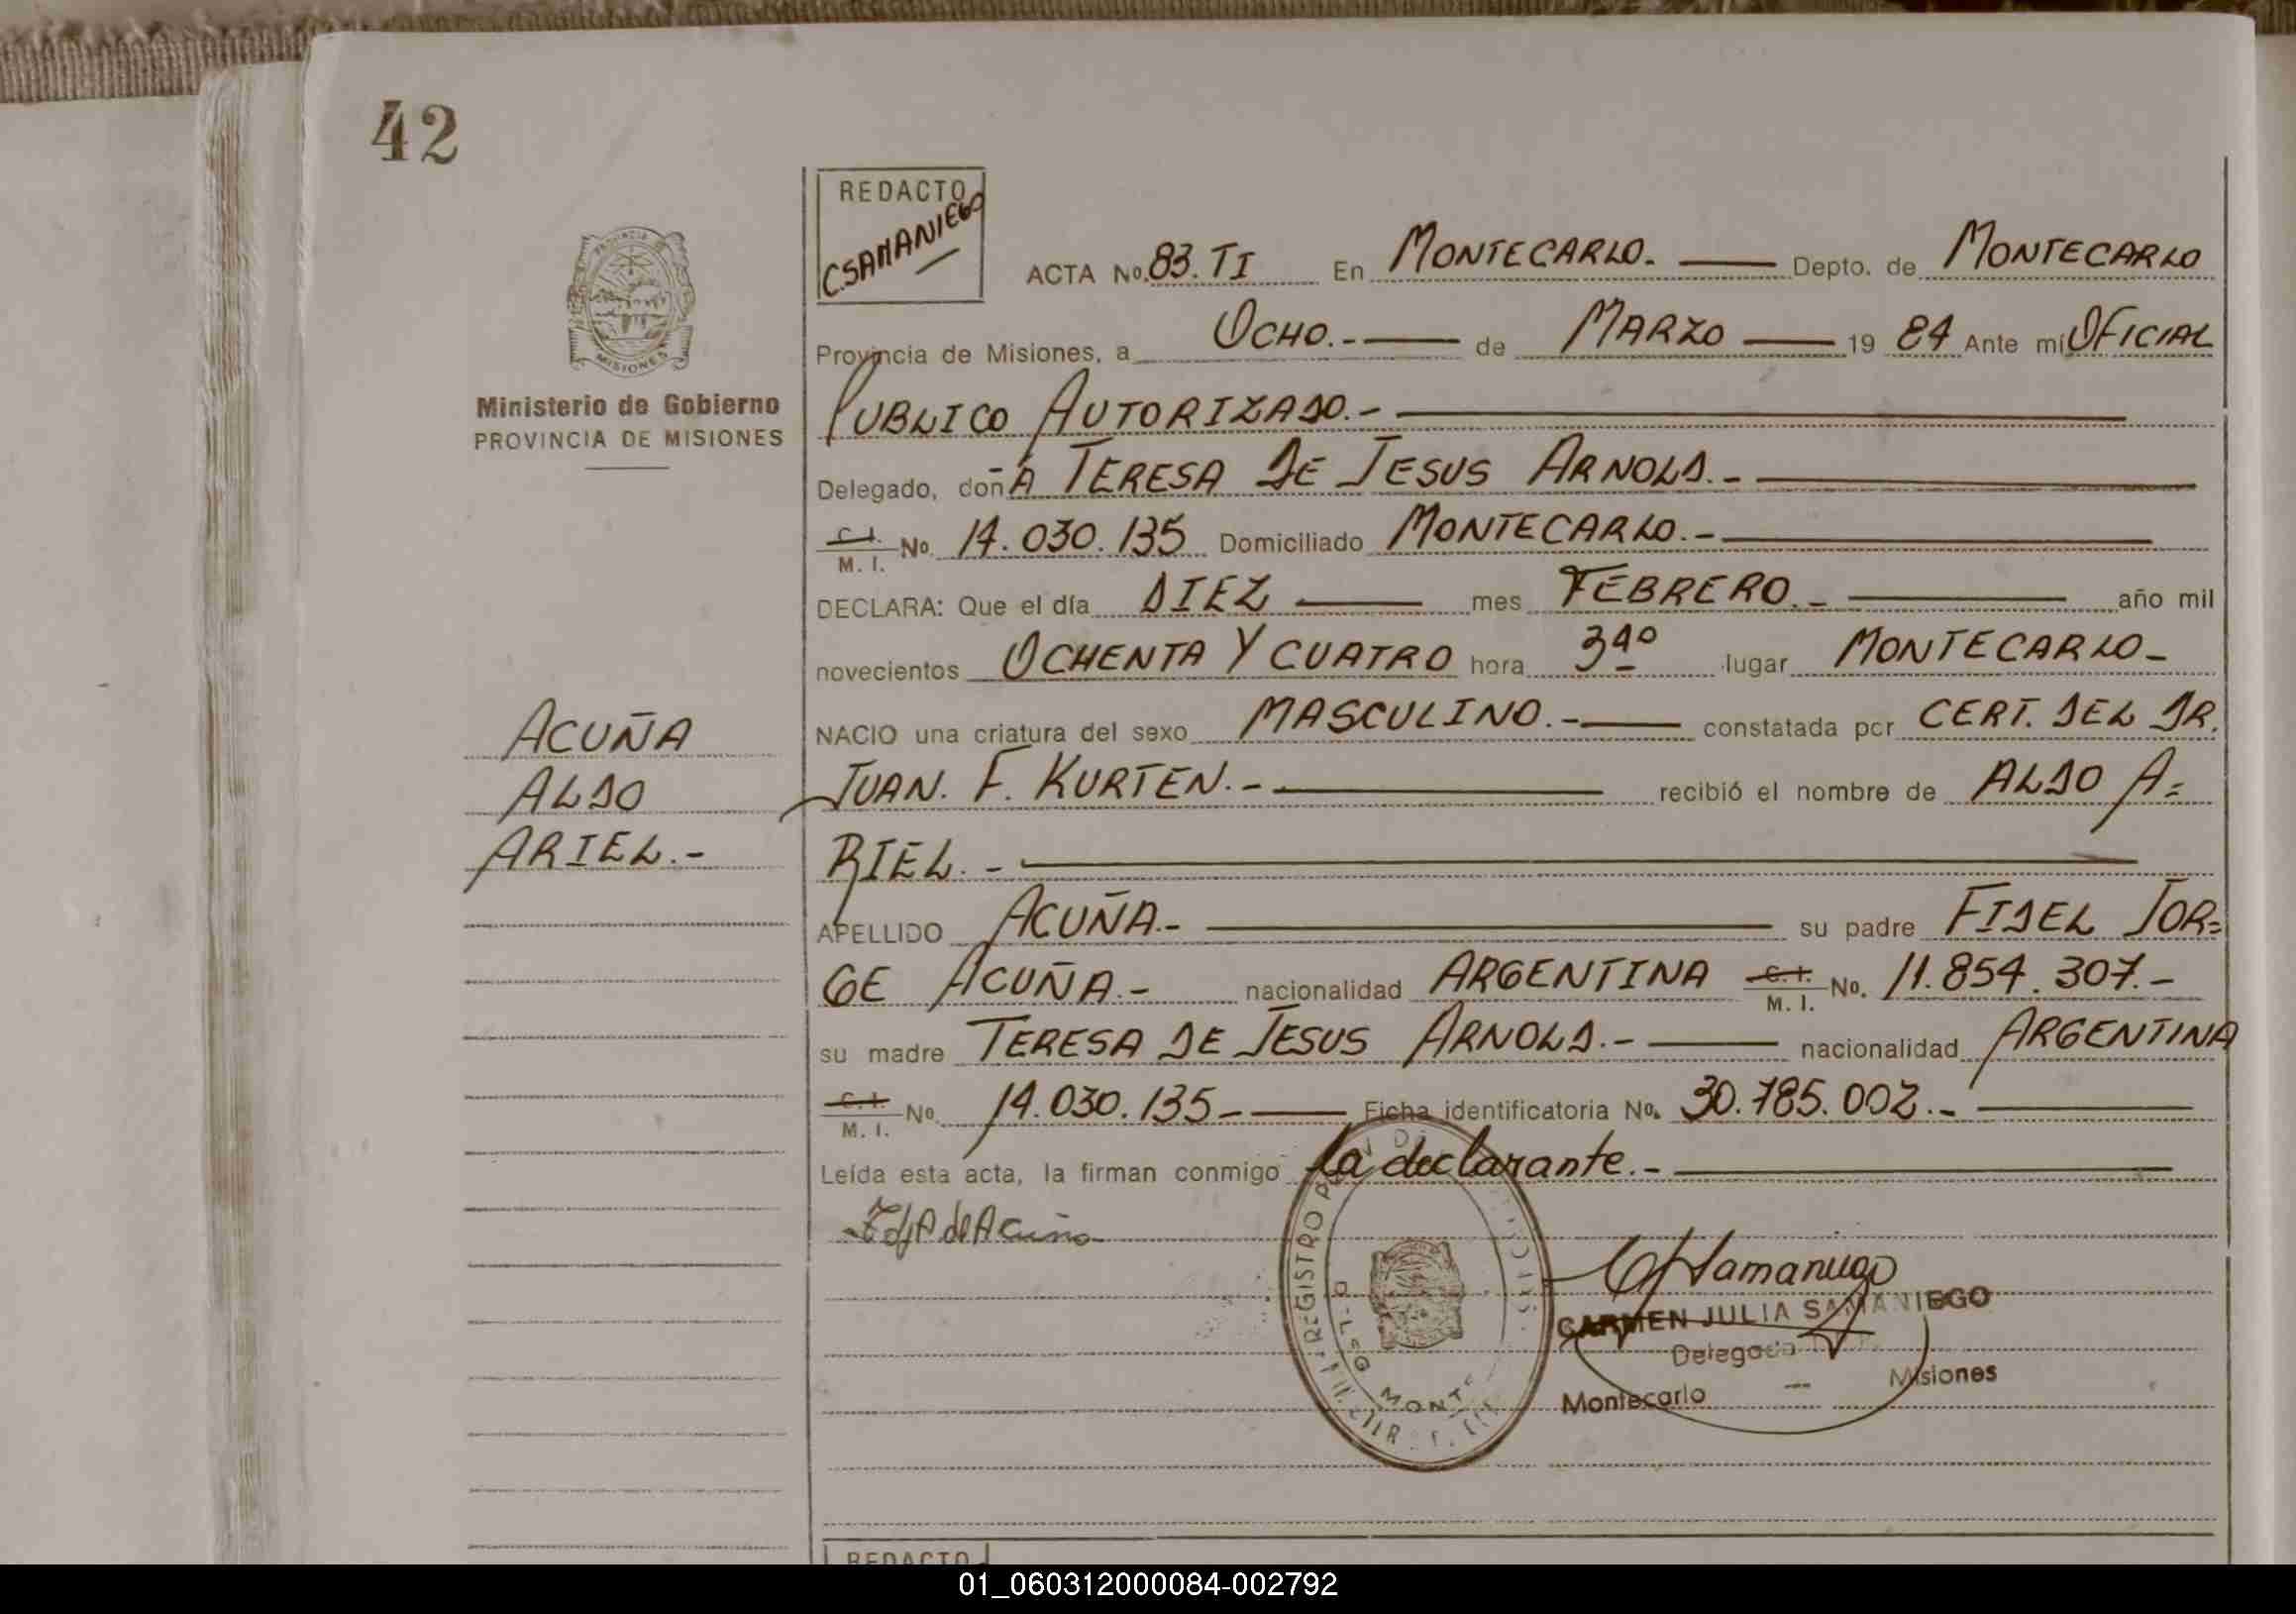 42
REDACTO
C.SAMANIEGO
ACTA No. 83. TI En MONTECARLO. Depto. de MONTECARLO
Provincia de Misiones, a OCHO.- de MARZO 19 84 Ante mi OFICIAL
PUBLICO AUTORIZADO.-
Delegado, doñA TERESA DE JESUS ARNOLD.-
C. I. M. I. No. 14.030.135 Domiciliado MONTECARLO.-
DECLARA: Que el día DIEZ mes FEBRERO.- año mil
novecientos OCHENTA Y CUATRO hora lugar MONTECARLO-
NACIO una criatura del sexo MASCULINO.- constatada por CERT. DEL DR.
JUAN. F. KURTEN.- recibió el nombre de ALDO A=
RIEL.-
APELLIDO ACUÑA.- su padre FIDEL JOR=
GE ACUÑA.- nacionalidad ARGENTINA C. I. M. I. No. 11.854.307.-
su madre TERESA DE JESUS ARNOLD.- nacionalidad ARGENTINA
C. I. M. I. No. 14.030.135- Ficha identificatoria No. 30.785.002.-
Leída esta acta, la firman conmigo la declarante.-
PROVINCIA DE
MISIONES
Ministerio de Gobierno
PROVINCIA DE MISIONES
ACUÑA
ALDO
ARIEL.-
REGISTRO
MONTE
CARMEN JULIA SAMANIEGO
Delegada
Montecarlo - Misiones
REDACTO
01_060312000084-002792